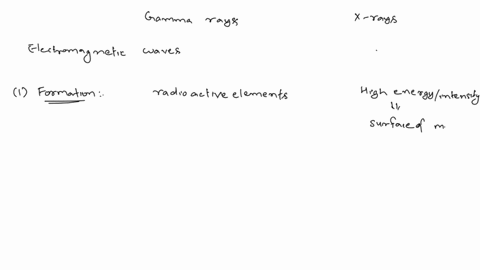 Gamma rays X-rays
Electromagnetic waves
(1) Formation:- radioactive elements High energy/intensity
⇓
surface of m